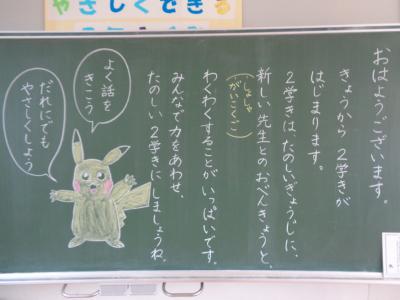 やさしくできる
おはようございます。
きょうから 2学きが
はじまります。
2学きは、たのしいぎょうじに、
新しい先生とのおべんきょうと、
(しょしゃ
がいこくご)
わくわくすることがいっぱいです。
みんなで力をあわせ、
たのしい2学きにしましょうね。
よく話を
きこう
だれにでも
やさしくしよう